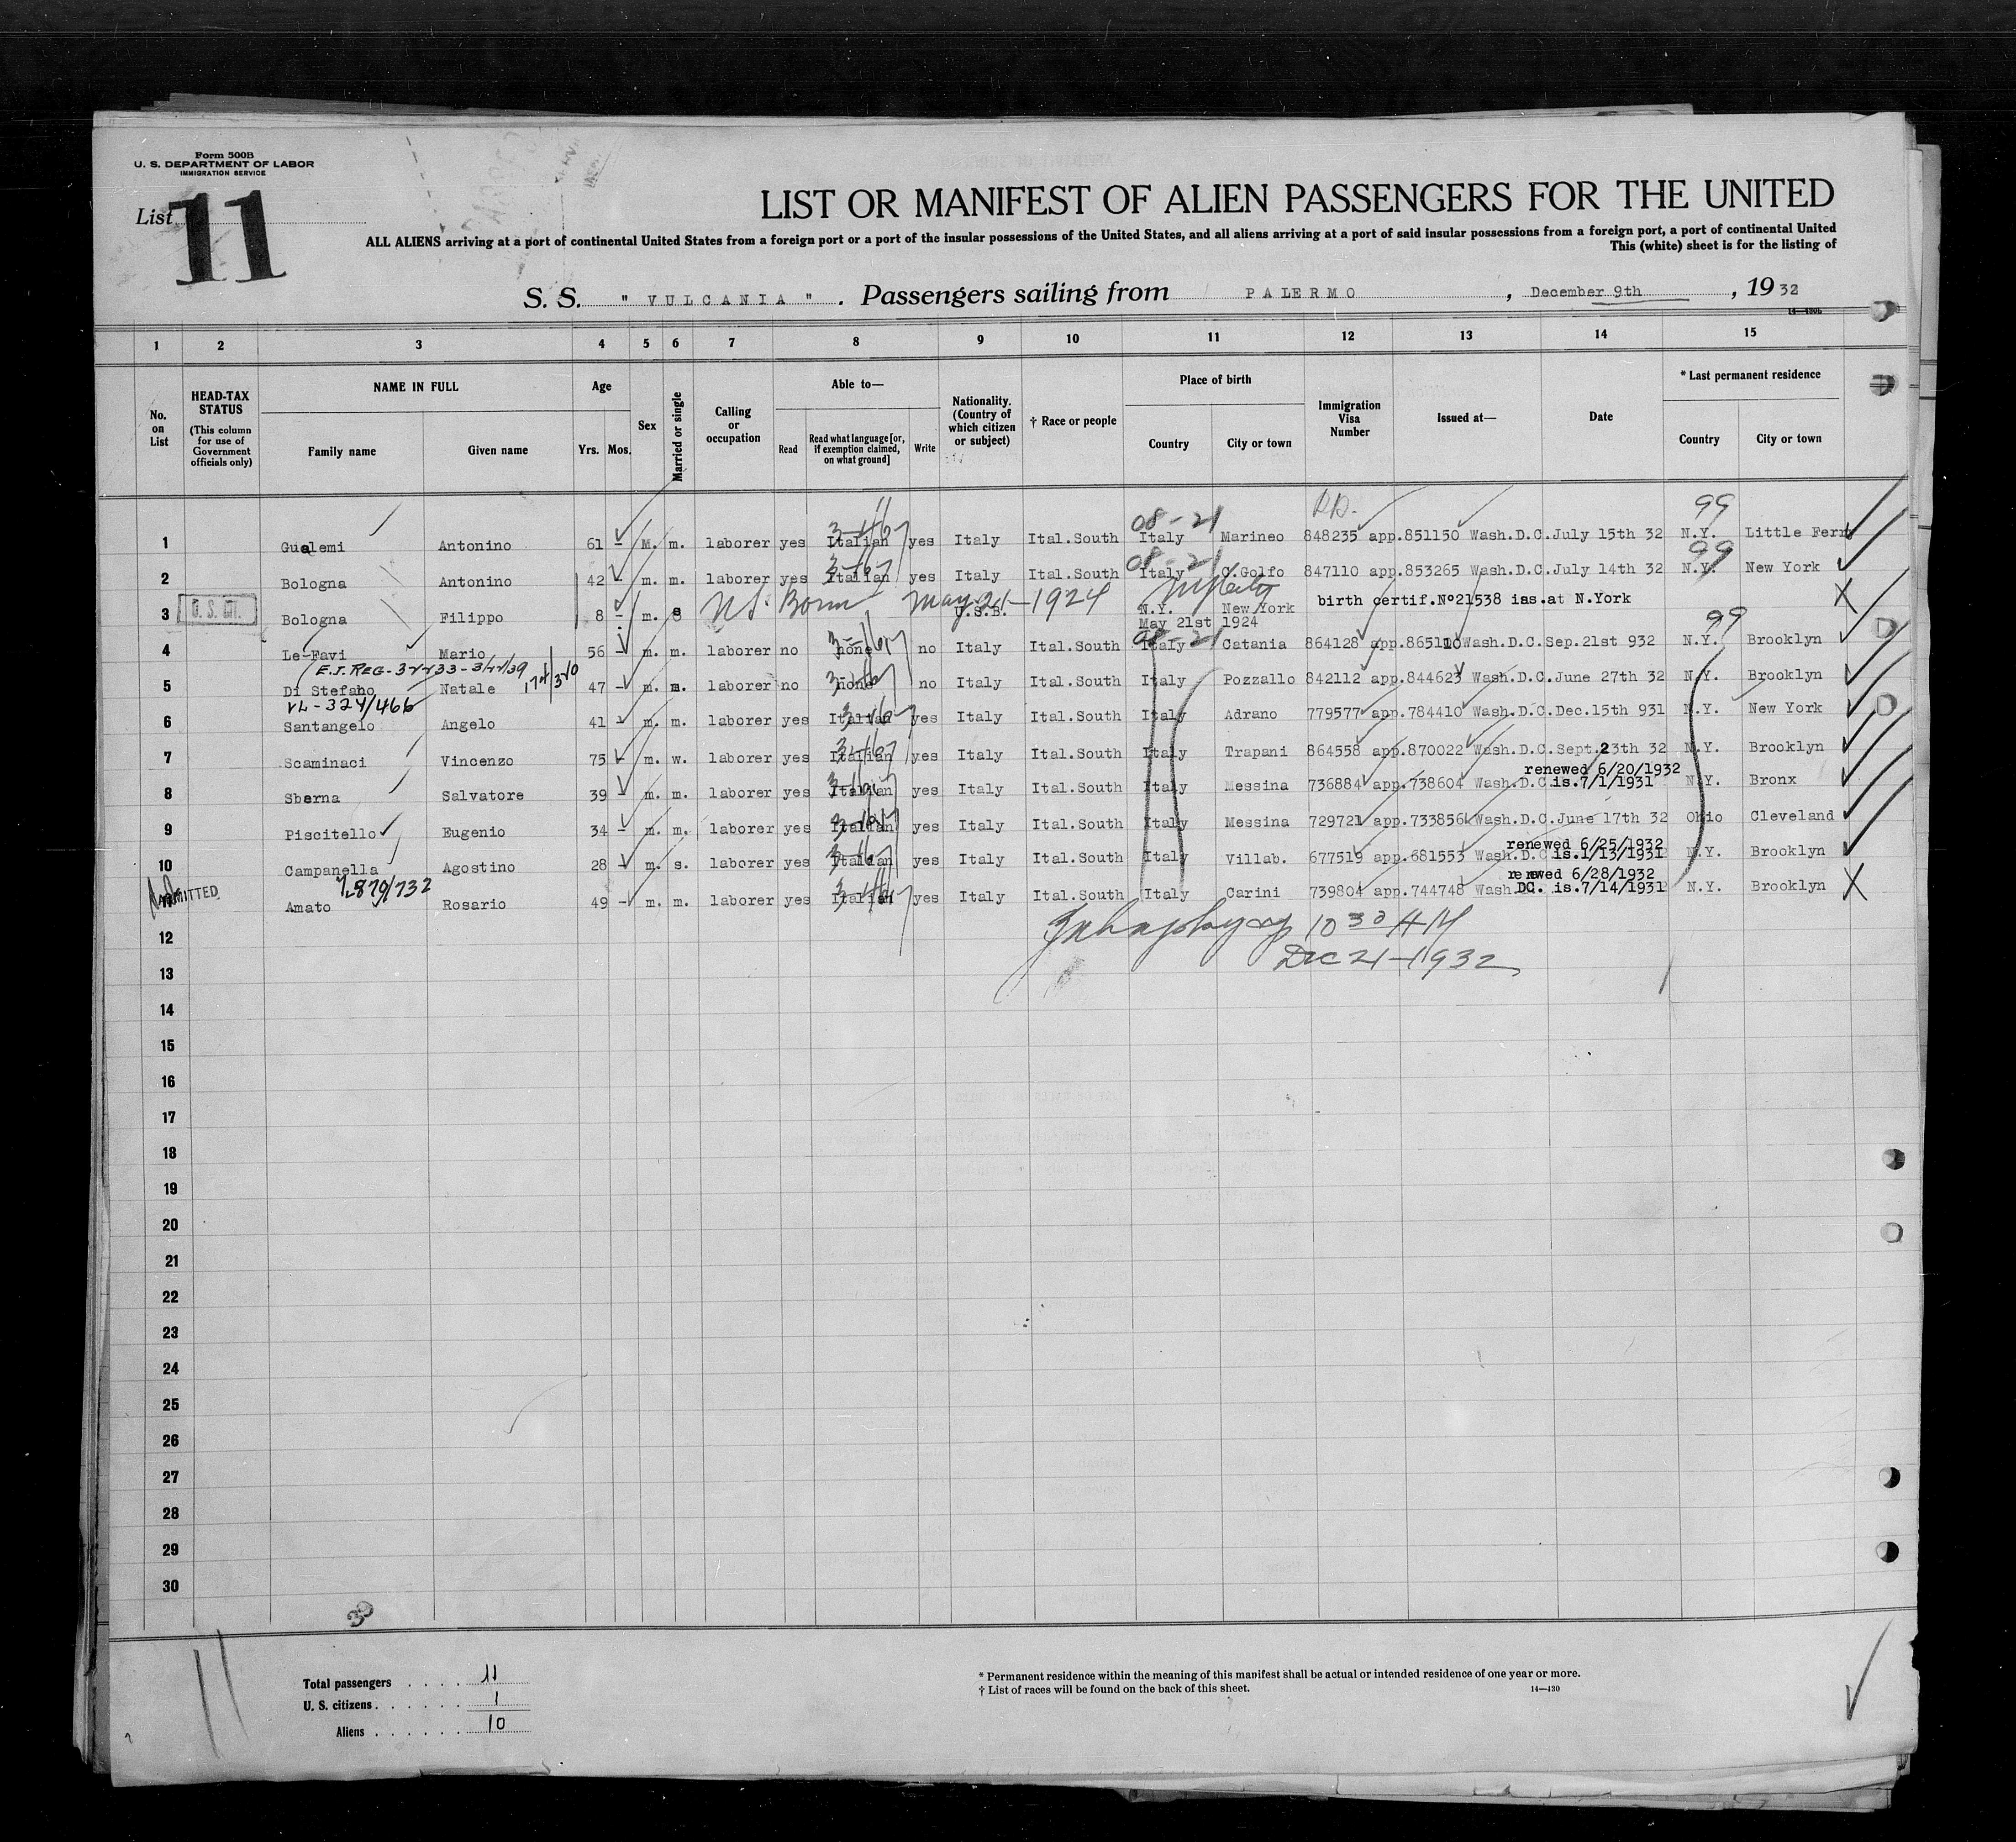 Form 500B
U. S. DEPARTMENT OF LABOR
IMMIGRATION SERVICE
List 11
LIST OR MANIFEST OF ALIEN PASSENGERS FOR THE UNITED
ALL ALIENS arriving at a port of continental United States from a foreign port or a port of the insular possessions of the United States, and all aliens arriving at a port of said insular possessions from a foreign port, a port of continental United
This (white) sheet is for the listing of
S. S. " VULCANIA ". Passengers sailing from PALERMO, December 9th, 19 32
1 2 3 4 5 6 7 8 9 10 11 12 13 14 15
No. on List
HEAD-TAX STATUS (This column for use of Government officials only)
NAME IN FULL
Family name Given name
Age
Yrs. Mos.
Sex
Married or single
Calling or occupation
Able to—
Read Read what language [or, if exemption claimed, on what ground] Write
Nationality. (Country of which citizen or subject)
† Race or people
Place of birth
Country City or town
Immigration Visa Number
Issued at—
Date
* Last permanent residence
Country City or town
99
1 Gualemi Antonino 61 - M. m. laborer yes Italian yes Italy Ital.South Italy Marineo 848235 app.851150 Wash.D.C. July 15th 32 N.Y. Little Ferry
99
2 Bologna Antonino 42 - m. m. laborer yes Italian yes Italy Ital.South Italy C.Golfo 847110 app.853265 Wash.D.C. July 14th 32 N.Y. New York
3 Bologna Filippo 8 - m. s US. Born May 21-1924 U.S.B. N.Y. New York birth certif.Nº21538 iss.at N.York
May 21st 1924
99
4 Le Favi Mario 56 - m. m. laborer no none no Italy Ital.South Italy Catania 864128 app.865110 Wash.D.C. Sep.21st 932 N.Y. Brooklyn
5 Di Stefano Natale 47 - m. s. laborer no none no Italy Ital.South Italy Pozzallo 842112 app.844623 Wash.D.C. June 27th 32 N.Y. Brooklyn
VL-324/466
6 Santangelo Angelo 41 - m. m. laborer yes Italian yes Italy Ital.South Italy Adrano 779577 app.784410 Wash.D.C. Dec.15th 931 N.Y. New York
7 Scaminaci Vincenzo 75 - m. w. laborer yes Italian yes Italy Ital.South Italy Trapani 864558 app.870022 Wash.D.C. Sept.23th 32 N.Y. Brooklyn
renewed 6/20/1932
8 Sberna Salvatore 39 - m. m. laborer yes Italian yes Italy Ital.South Italy Messina 736884 app.738604 Wash.D.C. is.7/1/1931 N.Y. Bronx
9 Piscitello Eugenio 34 - m. m. laborer yes Italian yes Italy Ital.South Italy Messina 729721 app.733856 Wash.D.C. June 17th 32 Ohio Cleveland
renewed 6/25/1932
10 Campanella Agostino 28 - m. s. laborer yes Italian yes Italy Ital.South Italy Villab. 677519 app.681553 Wash.D.C is.1/13/1931 N.Y. Brooklyn
renewed 6/28/1932
ADMITTED Amato Rosario 49 - m. m. laborer yes Italian yes Italy Ital.South Italy Carini 739804 app.744748 Wash.DC. is.7/14/1931 N.Y. Brooklyn
12 10 30 AM
13 Dec 21-1932
14
15
16
17
18
19
20
21
22
23
24
25
26
27
28
29
30
Total passengers . . . . 11
U. S. citizens . . . . . 1
Aliens . . . . . . 10
* Permanent residence within the meaning of this manifest shall be actual or intended residence of one year or more.
† List of races will be found on the back of this sheet.
14—430